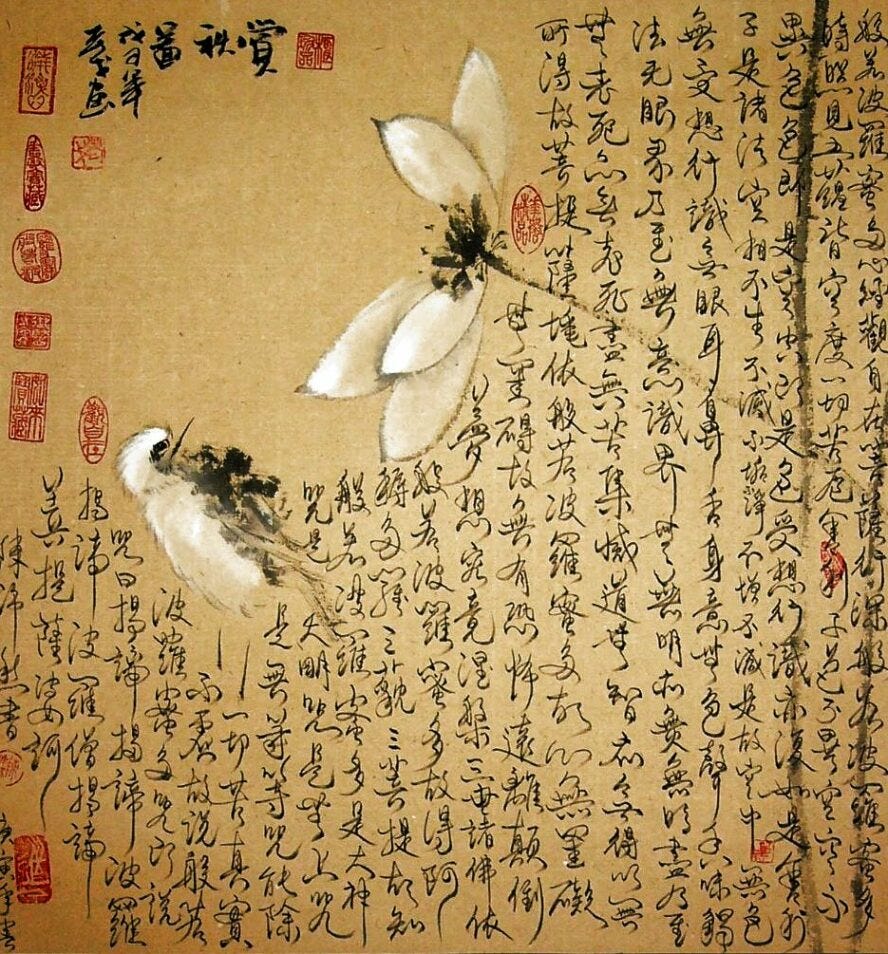 般若波羅蜜多心經觀自在菩薩行深般若波羅蜜多
時照見五蘊皆空度一切苦厄舍利子色不異空空不
異色色即是空空即是色受想行識亦復如是舍利
子是諸法空相不生不滅不垢淨不增不減是故空中無色
無受想行識無眼耳鼻舌身意無色聲香味觸
法无眼界乃至無意識界無無明亦無無明盡乃至
無老死亦無老死盡無苦集滅道無智亦無得以無
所得故菩提薩埵依般若波羅蜜多故心無罣礙
無罣礙故無有恐怖遠離顛倒
夢想究竟涅槃三世諸佛依
般若波羅蜜多故得阿
耨多羅三藐三菩提故知
般若波羅蜜多是大神
咒是大明咒是無上咒
是無等等咒能除
一切苦真實
不虛故說般若
波羅蜜多咒即說
咒曰揭諦揭諦波羅
揭諦波羅僧揭諦
菩提薩婆訶
陳沛然書
庚寅年書
賞秋圖